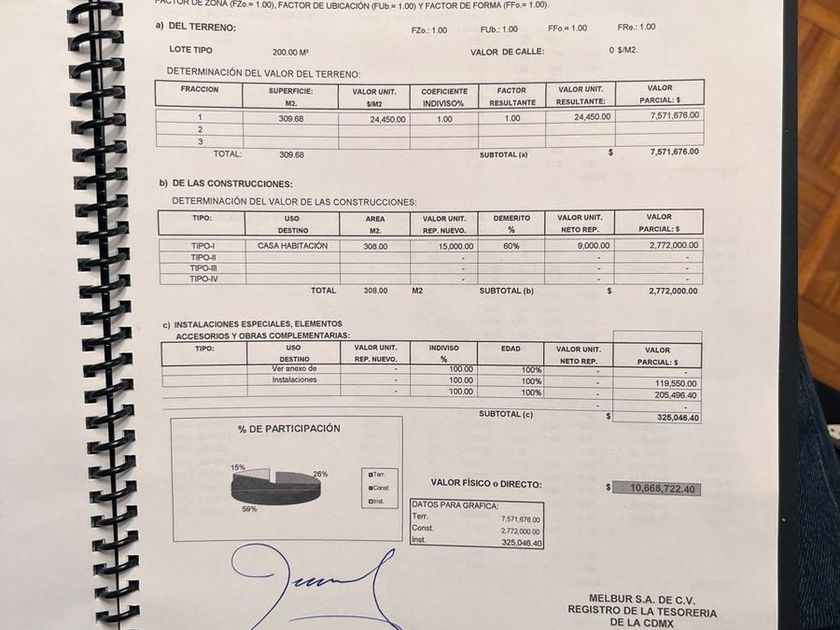 FACTOR DE ZONA (FZo.= 1.00), FACTOR DE UBICACIÓN (FUb.= 1.00) Y FACTOR DE FORMA (FFo.= 1.00).
a) DEL TERRENO: FZo.: 1.00 FUb.: 1.00 FFo.= 1.00 FRe.: 1.00
LOTE TIPO 200.00 M² VALOR DE CALLE: 0 $/M2.
DETERMINACIÓN DEL VALOR DEL TERRENO:
FRACCION SUPERFICIE: VALOR UNIT. COEFICIENTE FACTOR VALOR UNIT. VALOR
M2. $/M2 INDIVISO% RESULTANTE RESULTANTE: PARCIAL: $
1 309.68 24,450.00 1.00 1.00 24,450.00 7,571,676.00
2
3
TOTAL: 309.68 SUBTOTAL (a) $ 7,571,676.00
b) DE LAS CONSTRUCCIONES:
DETERMINACIÓN DEL VALOR DE LAS CONSTRUCCIONES:
TIPO: USO AREA VALOR UNIT. DEMERITO VALOR UNIT. VALOR
DESTINO M2. REP. NUEVO. % NETO REP. PARCIAL: $
TIPO-I CASA HABITACIÓN 308.00 15,000.00 60% 9,000.00 2,772,000.00
TIPO-II - - -
TIPO-III - - -
TIPO-IV - - -
TOTAL 308.00 M2 SUBTOTAL (b) $ 2,772,000.00
c) INSTALACIONES ESPECIALES, ELEMENTOS
ACCESORIOS Y OBRAS COMPLEMENTARIAS:
TIPO: USO VALOR UNIT. INDIVISO EDAD VALOR UNIT. VALOR
DESTINO REP. NUEVO. % NETO REP. PARCIAL: $
Ver anexo de - 100.00 100% - -
Instalaciones - 100.00 100% - 119,550.00
- 100.00 100% - 205,496.40
- -
SUBTOTAL (c) $ 325,046.40
% DE PARTICIPACIÓN
15% 26%
59%
Terr.
Const.
Inst.
VALOR FÍSICO o DIRECTO: $ 10,668,722.40
DATOS PARA GRAFICA:
Terr. 7,571,676.00
Const. 2,772,000.00
Inst. 325,046.40
MELBUR S.A. DE C.V.
REGISTRO DE LA TESORERIA
DE LA CDMX